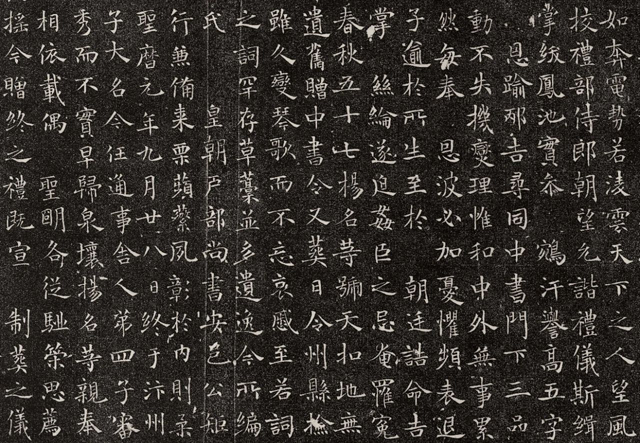 如奔電勢若淩雲天下之人望風
挍禮部侍郎朝望允諧禮儀斯緝
掌綍鳳池實叅 汗譽高五字
恩踰邴吉尋同中書門下三品
動不失機燮理惟和中外無事累
然每奉 恩波必加憂懼頻表退
子逾於所生至於 朝廷誥命吉
掌 絲綸遂迫姦臣之忌奄罹冤
春秋五十七揚名等號天扣地無
遺舊贈中書令又葬日令州縣撿
雖久變琴歌而不忘哀慼至若詞
之詞罕存草藁並多遺逸今所編
氏 皇朝戶部尚書安邑公矩
行兼備來粟蘋蘩夙彰於內則柔
聖曆元年九月廿八日終于汴州
子大名令任通事舍人第四子審
秀而不實早歸泉壤揚名等親奉
相依載偶 聖明各從榮思薦
搖今贈終之禮既宣 制葬之儀